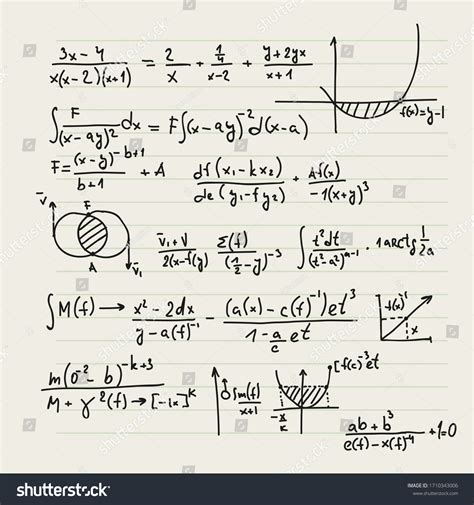 (3x-4)/(x(x-2)(x+1)) = 2/x + (1/4)/(x-2) + (y+2yx)/(x+1)
f(x)=y-1
∫ F/(x-ay)² dx = F∫(x-ay)⁻² d(x-a)
F= (x-y)^(-b+1)/(b+1) + A
df(x₁-kx₂)/de(y₁-fy₂) + Af(x)/(-1(x+y)³)
v̄ F A v̄₁
(v̄₁+V)/(2(x-f(y) Σ(f)/(½-y)⁻³
∫ t²dt/(t²-a²)^(a-1) · 1arctg 1/2a
∫M(f) → (x²-2dx)/(y-a(f)⁻¹) - ((a(x)-c(f)⁻¹)et³)/(1-(a/c)et)
f(x)¹ x
m(o⁻²-b)^(-k+3)/(M+γ²(f)→[-1x]^k)
sm(f)/(x+1)
-x/k
[f(c)⁻³et
(ab+b³)/(e(f)-x(f)⁻⁴) +1=0
shutterstock
shutterstock®
IMAGE ID: 1710343006
www.shutterstock.com